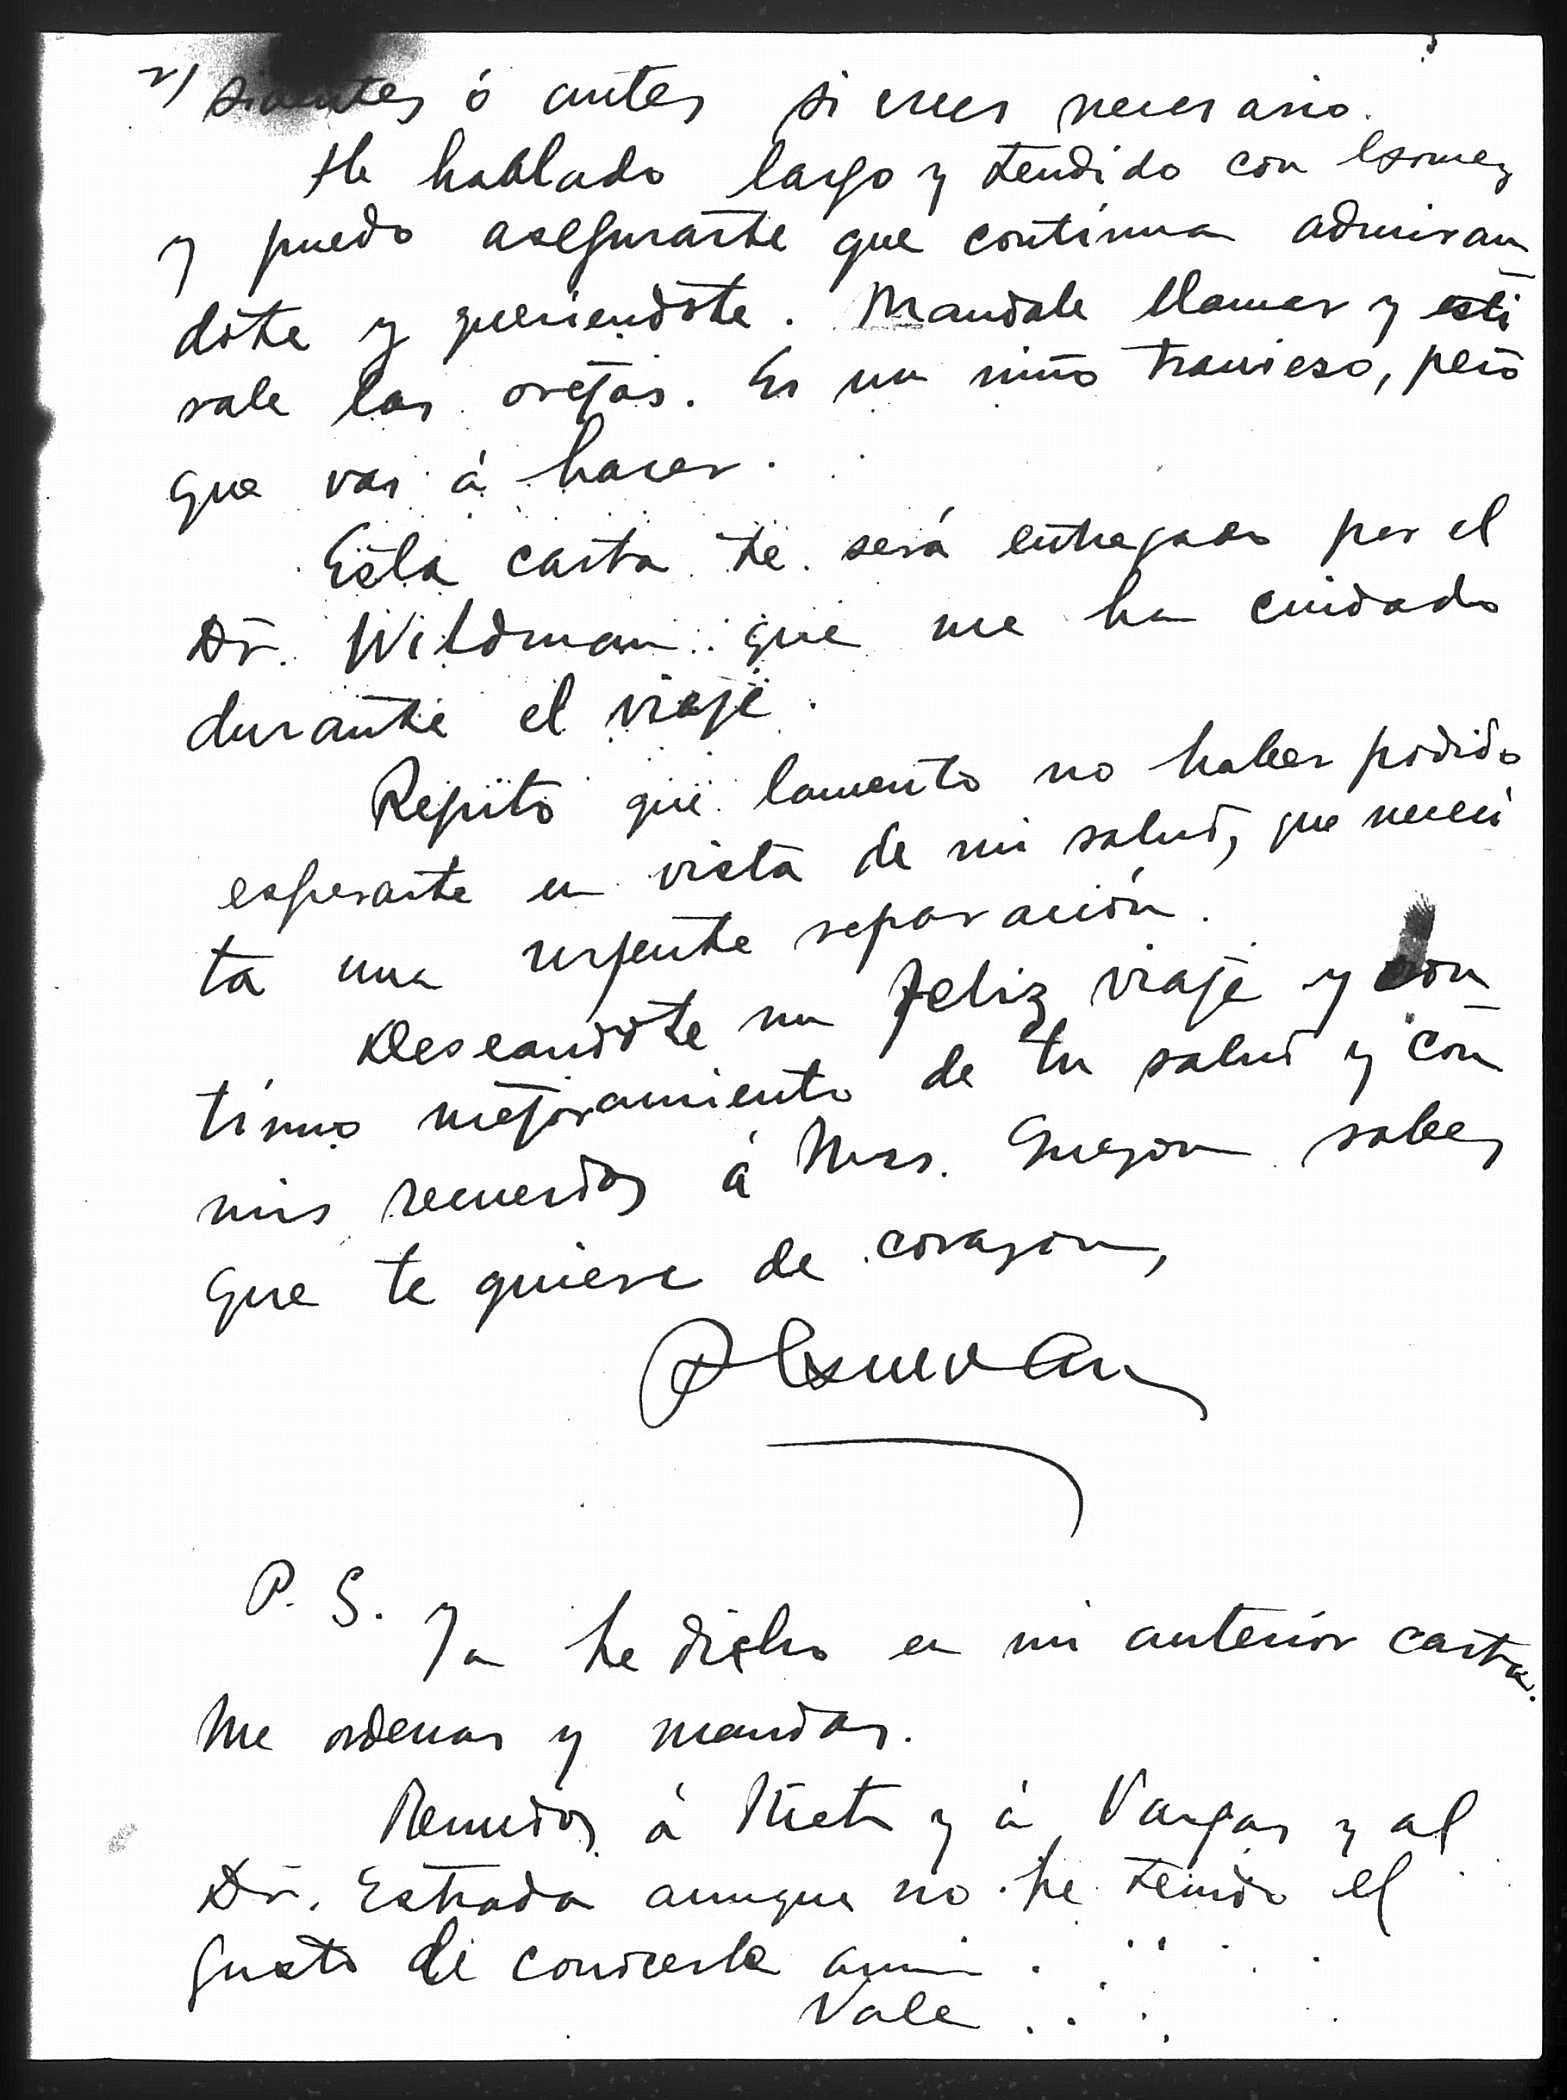 2/ sientes ó antes si crees necesario.
He hablado largo y tendido con Gomez
y puedo asegurarte que continua admiran
dote y queriendote. Mandale llamar y esti
rale las orejas. Es un niño travieso, pero
que vas á hacer.
Esta carta te será entregada por el
Dr. Wildman que me ha cuidado
durante el viaje.
Repito que lamento no haber podido
esperarte en vista de mi salud, que necesi
ta una urgente reparación.
Deseandote un feliz viaje y con-
tínuo mejoramiento de tu salud y con
mis recuerdos á Mrs. Quezon sabes
que te quiere de corazon,
P. S. Ya he dicho en mi anterior carta.
Me ordenas y mandas.
Recuerdos á Nieto y á Vargas y al
Dr. Estrada aunque no he tenido el
gusto de conocerle aun.
Vale